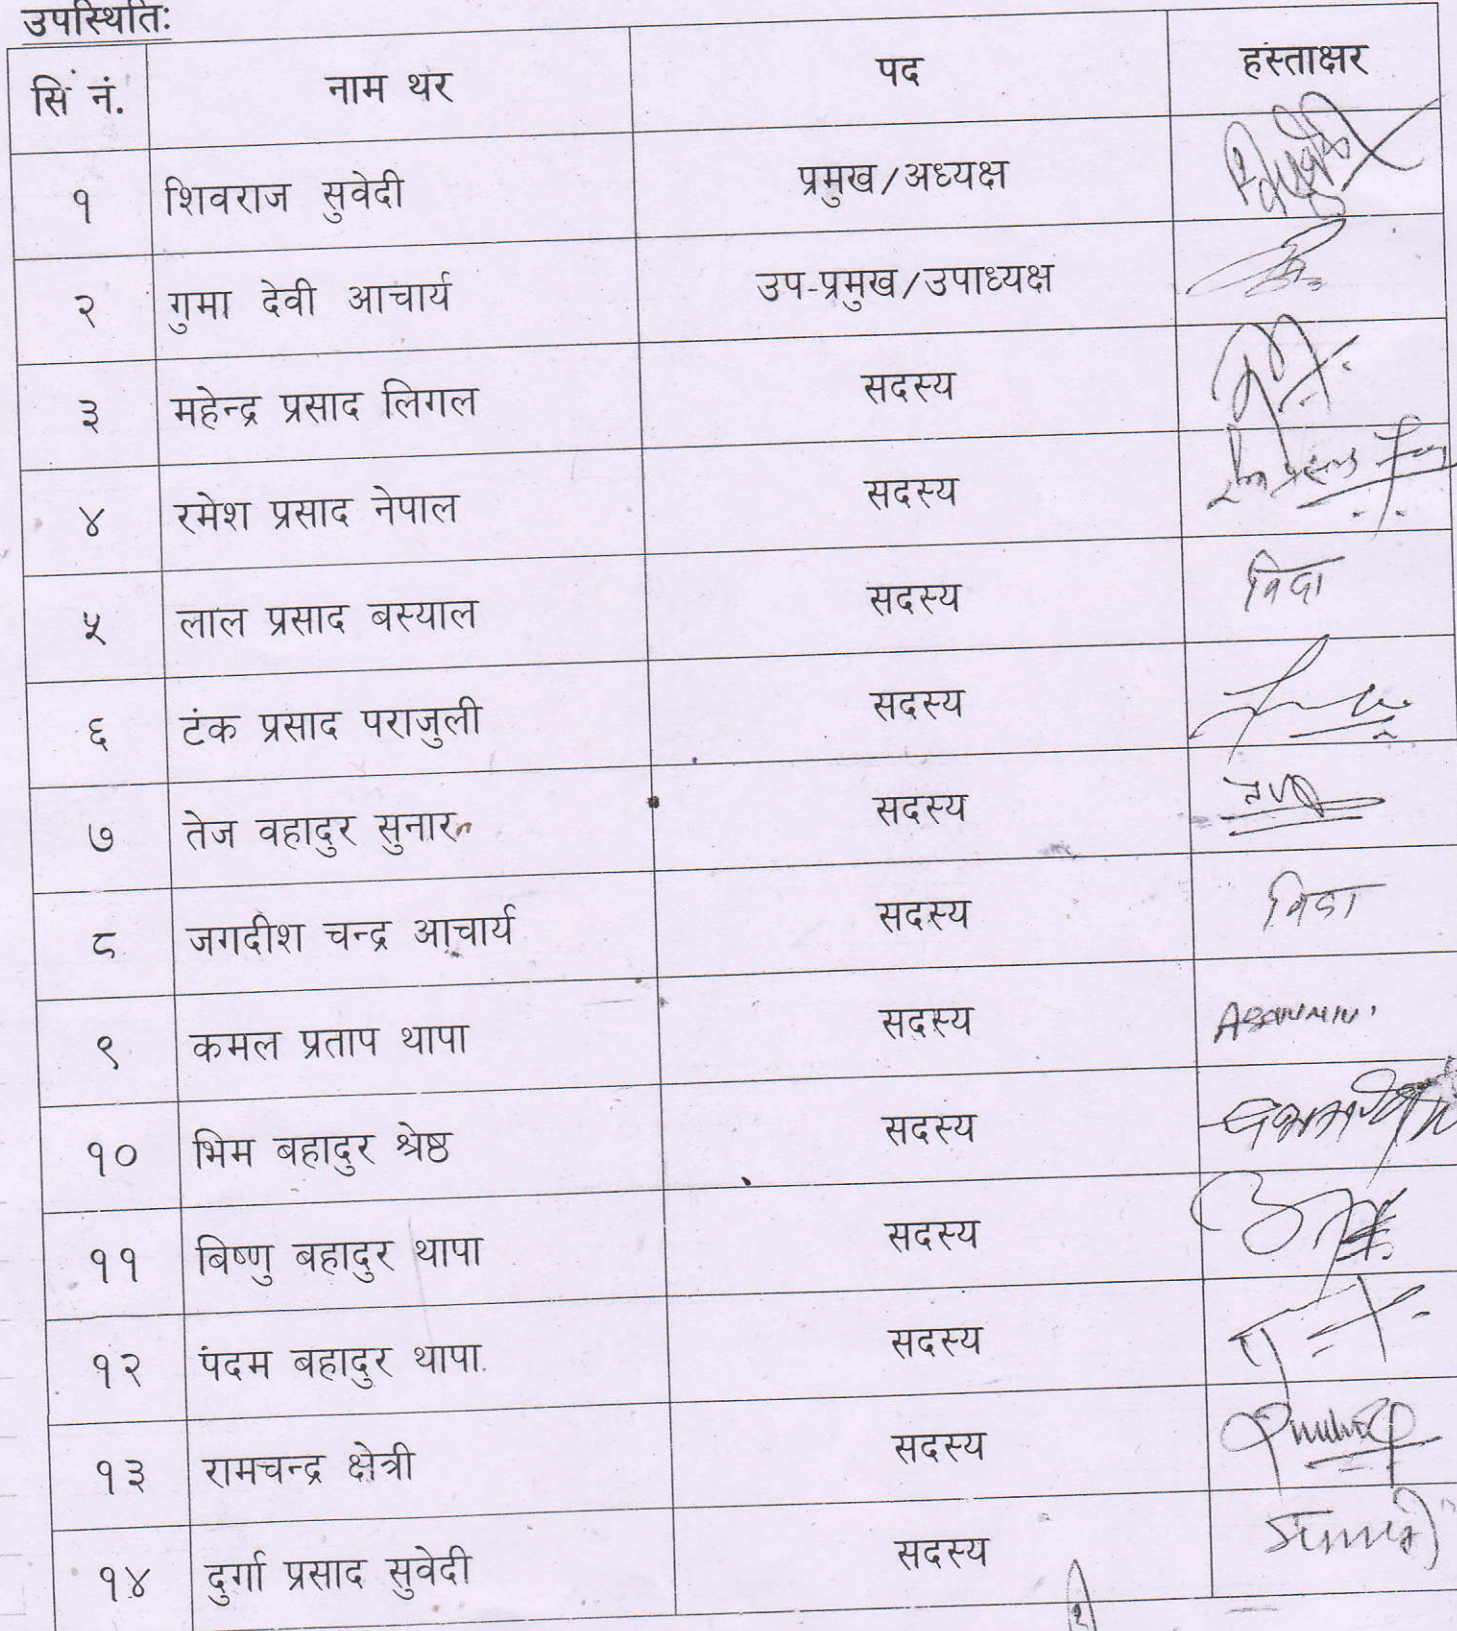 उपस्थितिः
सि नं. नाम थर पद हस्ताक्षर
१ शिवराज सुवेदी प्रमुख/अध्यक्ष
२ गुमा देवी आचार्य उप-प्रमुख/उपाध्यक्ष
३ महेन्द्र प्रसाद लिगल सदस्य
४ रमेश प्रसाद नेपाल सदस्य
५ लाल प्रसाद बस्याल सदस्य विदा
६ टंक प्रसाद पराजुली सदस्य
७ तेज वहादुर सुनार सदस्य
८ जगदीश चन्द्र आचार्य सदस्य विदा
९ कमल प्रताप थापा सदस्य
१० भिम बहादुर श्रेष्ठ सदस्य
११ बिष्णु बहादुर थापा सदस्य
१२ पंदम बहादुर थापा सदस्य
१३ रामचन्द्र क्षेत्री सदस्य
१४ दुर्गा प्रसाद सुवेदी सदस्य